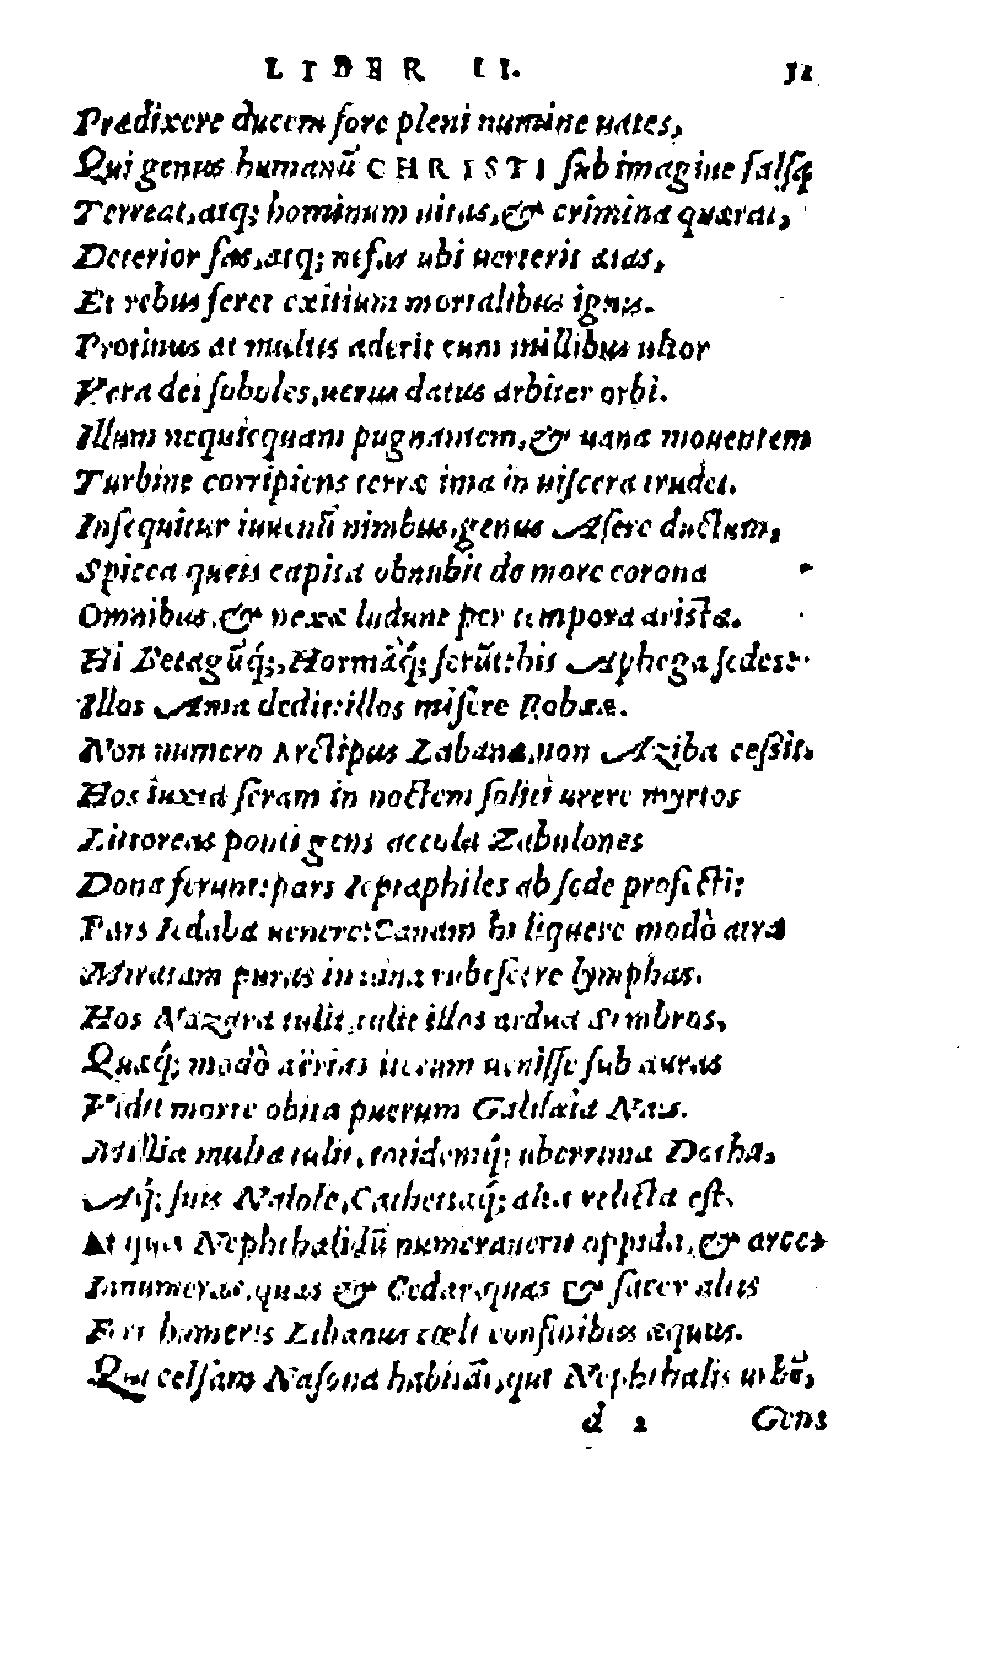 LIBER II.
Prædixere ducem fore pleni numine uates,
Qui genus humanũ CHRISTI sub imagine falsę
Terreat, atq; hominum uitas, & crimina quærat,
Deterior fas, atq; nefas ubi uerterit ætas,
Et rebus feret exitium mortalibus ignis.
Protinus at multis aderit cum millibus ultor
Vera dei soboles, uerus datus arbiter orbi.
Illum nequicquam pugnantem, & uana mouentem
Turbine corripiens terræ ima in uiscera trudet.
Insequitur iuuenũ nimbus, genus Asere ductum,
Spicea queis capita obnubit de more corona
Omnibus, & nexæ ludunt per tempora aristæ.
Hi Betagũq́;, Hormáq́; ferũt: his Aphega sedes:
Illos Ama dedit: illos misere Robææ.
Non numero Arctipus Labanæ, non Aziba cessit.
Hos iuxta seram in noctem soliti urere myrtos
Littoreas ponti gens accola Zabulones
Dona ferunt: pars Ieptaphiles ab sede profecti:
Pars Iedaba uenere: Canam hi liquere modò atra
Miratam puras in uina rubescere lymphas.
Hos Nazara tulit, tulit illos ardua Simbros,
Quæq́; modò aërias iterum uenisse sub auras
Vidit morte obita puerum Galilæia Nais.
Millia multa tulit, totidemq́; uberrima Dotha,
Aq́; suis Nalole, Cathetaq́; alta relicta est.
At quis Nephthalidũ numerauerit oppida, & arces
Innumeras, quas & Cedar, quas & sacer altis
Fert humeris Libanus cœli confinibus æquus.
Qui celsam Nasona habitãt, qui Nephthalis urbẽ,
d 2 Gens